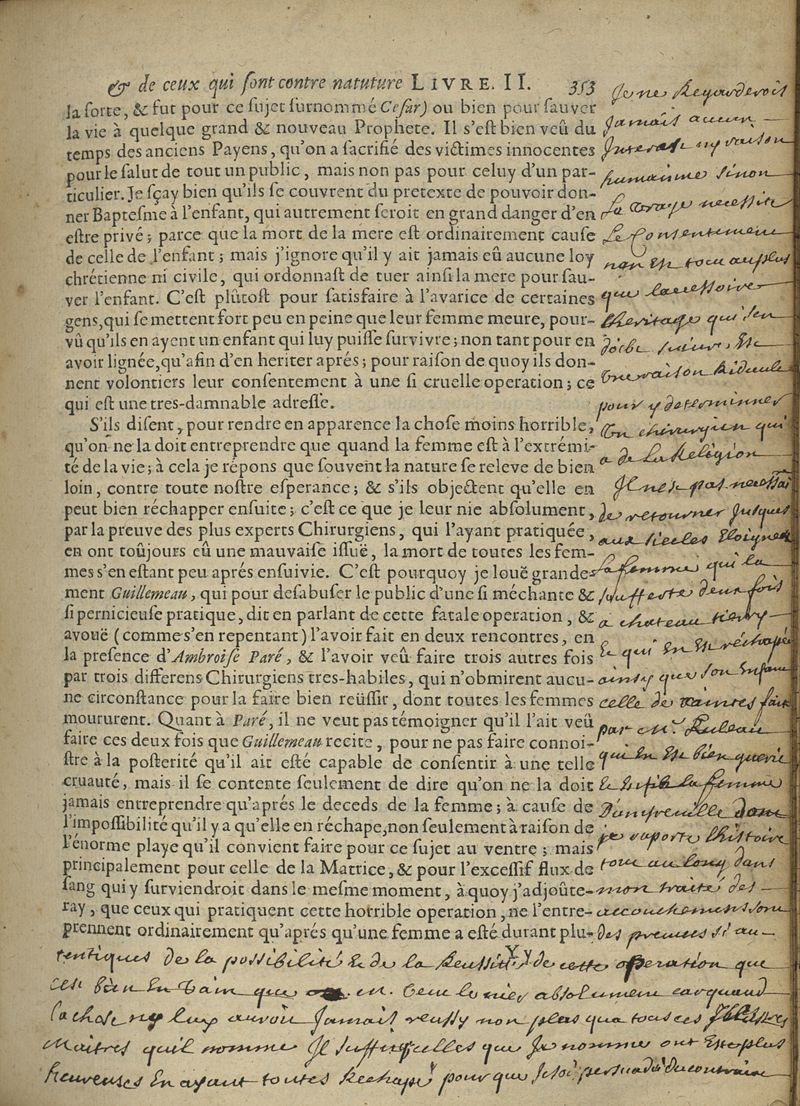 & de ceux qui sont contre natuture LIVRE. II. 353
la sorte, & fut pour ce sujet surnommé Cesar) ou bien pour sauver
la vie à quelque grand & nouveau Prophete. Il s'est bien veû du
temps des anciens Payens, qu'on a sacrifié des victimes innocentes
pour le salut de tout un public, mais non pas pour celuy d'un par-
ticulier. Je sçay bien qu'ils se couvrent du pretexte de pouvoir don-
ner Baptesme à l'enfant, qui autrement seroit en grand danger d'en
estre privé; parce que la mort de la mere est ordinairement cause
de celle de l'enfant; mais j'ignore qu'il y ait jamais eû aucune loy
chrétienne ni civile, qui ordonnast de tuer ainsi la mere pour sau-
ver l'enfant. C'est plûtost pour satisfaire à l'avarice de certaines
gens, qui se mettent fort peu en peine que leur femme meure, pour-
vû qu'ils en ayent un enfant qui luy puisse survivre; non tant pour en
avoir lignée, qu'afin d'en heriter aprés; pour raison de quoy ils don-
nent volontiers leur consentement à une si cruelle operation; ce
qui est une tres-damnable adresse.
S'ils disent, pour rendre en apparence la chose moins horrible,
qu'on ne la doit entreprendre que quand la femme est à l'extrémi-
té de la vie; à cela je répons que souvent la nature se releve de bien
loin, contre toute nostre esperance; & s'ils objectent qu'elle en
peut bien réchapper ensuite; c'est ce que je leur nie absolument,
par la preuve des plus experts Chirurgiens, qui l'ayant pratiquée,
en ont toûjours eû une mauvaise issuë, la mort de toutes les fem-
mes s'en estant peu aprés ensuivie. C'est pourquoy je louë grande-
ment Guillemeau, qui pour desabuser le public d'une si méchante &
si pernicieuse pratique, dit en parlant de cette fatale operation, &
avouë (comme s'en repentant) l'avoir fait en deux rencontres, en
la presence d'Ambroise Paré, & l'avoir veû faire trois autres fois
par trois differens Chirurgiens tres-habiles, qui n'obmirent aucu-
ne circonstance pour la faire bien reüssir, dont toutes les femmes
moururent. Quant à Paré, il ne veut pas témoigner qu'il l'ait veû
faire ces deux fois que Guillemeau recite, pour ne pas faire connoi-
stre à la posterité qu'il ait esté capable de consentir à une telle
cruauté, mais il se contente seulement de dire qu'on ne la doit
jamais entreprendre qu'aprés le deceds de la femme; à cause de
l'impossibilité qu'il y a qu'elle en réchape, non seulement à raison de
l'énorme playe qu'il convient faire pour ce sujet au ventre; mais
principalement pour celle de la Matrice, & pour l'excessif flux de
sang qui y surviendroit dans le mesme moment, à quoy j'adjoûte-
ray, que ceux qui pratiquent cette horrible operation, ne l'entre-
prennent ordinairement qu'aprés qu'une femme a esté durant plu-
Yy
Je ne Regarderois
Jamais aucun
Interest ny raison
humaine sinon
la vraye necessité
le Consentement
non en tout au plus
que
heritage qui s'en
doibt suivre,
raison Ridicule
pour y determinner
Un chirurgien qui
a de la Religion
Il nest pas necessai
de retourner Jusques
aux siecles Eloignés
la femme qui la
soufferte deux fois
a chateau tierry
qui en est réchapé
ainsy que son enfant
celle de xaintes fait
par Mr Ruleau
qui en est bien guerie
la femme
dont
je raporte l'histoire
tout au long dans
mon traité des
accouchements sont
des preuves si au
tentiques de la possibilité & de la Reussite de cette operation que
cest bien En Vain que le nier absolument car quand
la chose ne luy auroit Jamais reussy non plus qua tous ces
maitres quil nomme Il suffit celles que Je nomme ont Esté plus
heureuses En ayant toutes Rechapé pour que Je soi persuadé du contraire